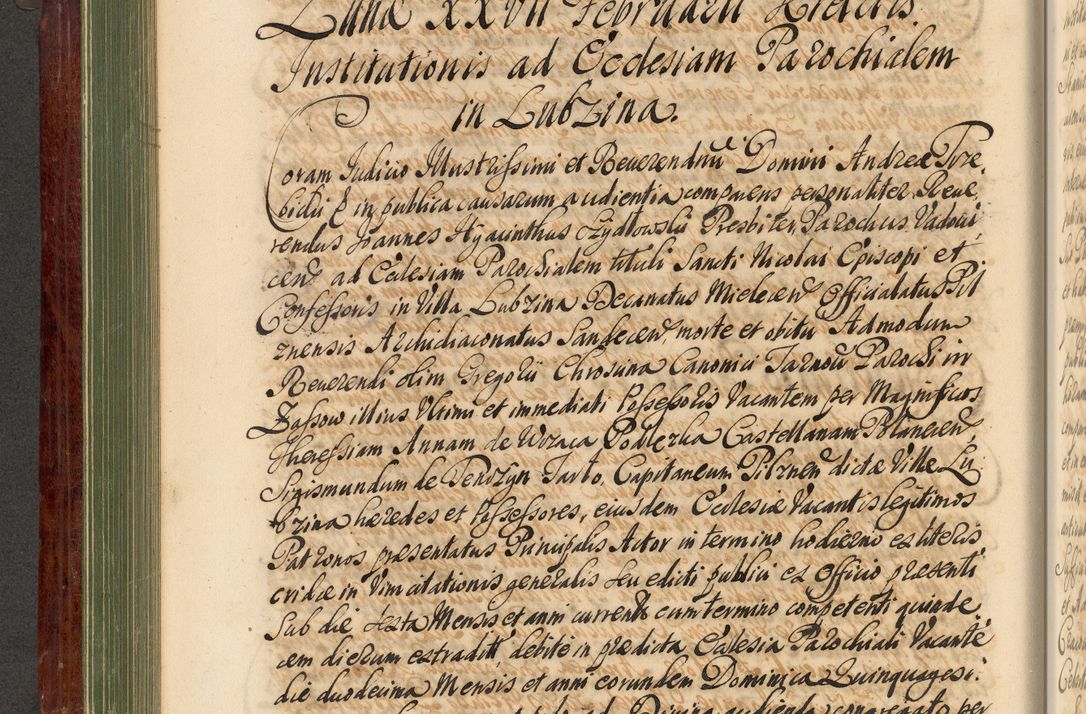 Luna XXVII Februarii
Institutionis ad Ecclesiam Parochialem
in Lubzina.
Coram Judicio Illustrissimi et Reverendmi Domini Andreæ Trze-
bicki & in publica causarum audientia comparens personaliter Reve-
rendus Joannes Hyacinthus Presbiter, Parochus Vadovi-
cen ad Ecclesiam Parochialem tituli Sancti Nicolai Episcopi et
Confessoris in Villa Lubzina Decanatus Mielecen Officialatus Pil
znensis Archidiaconatus Sandecen, morte et obitu Admodum
Reverendi olim Gregorii Canonici Tarnou Parochi in
Zassow illius Vltimi et immediati Possessoris Vacantem per Magnificos
Theressiam Annam de Castellanam Polanecen
Sigismundum de Tenczyn Tarło, Capitaneum Pilznen dictæ Villæ Lu-
bzina hæredes et Possessores, eiusdem Ecclesiæ Vacantis legitimos
Patronos præsentatus Principalis Actor in termino hodierno ex literis
cridæ in Vim citationis generalis seu edicti publici ex Officio præsenti
sub die sexta Mensis et anni currentis cum termino competenti quinde-
cem dierum extraditt, debite in prædicta Ecclesia Parochiali Vacante
die duodecima Mensis et anni eorundem Dominica Quinquagesi-
ad Divina audienda congregato per